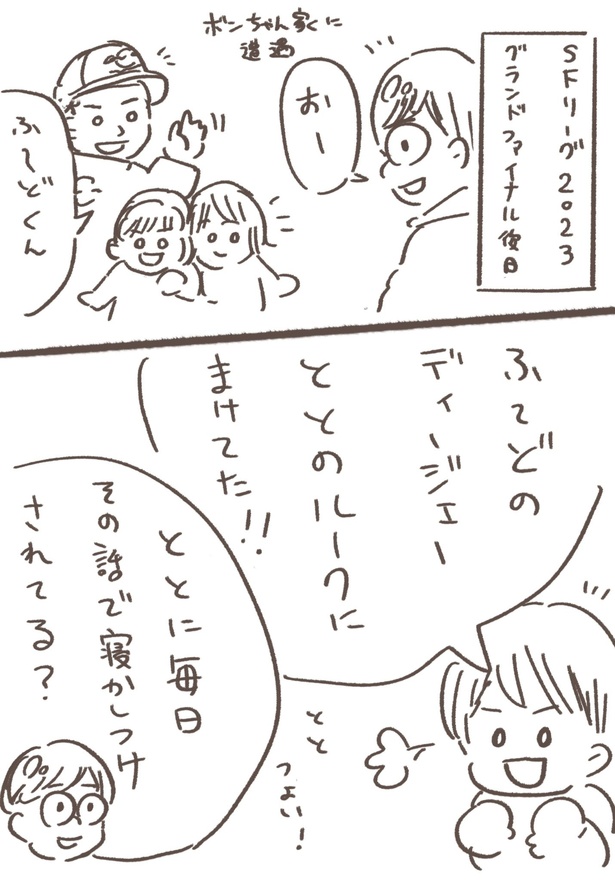 SFリーグ2023
グランドファイナル後日
ボンちゃん家に
遭遇
おー
ふ〜どくん
ふ〜どの
ディージェー
ととのルークに
まけてた!!
ととに毎日
その話で寝かしつけ
されてる?
とと
つよい!